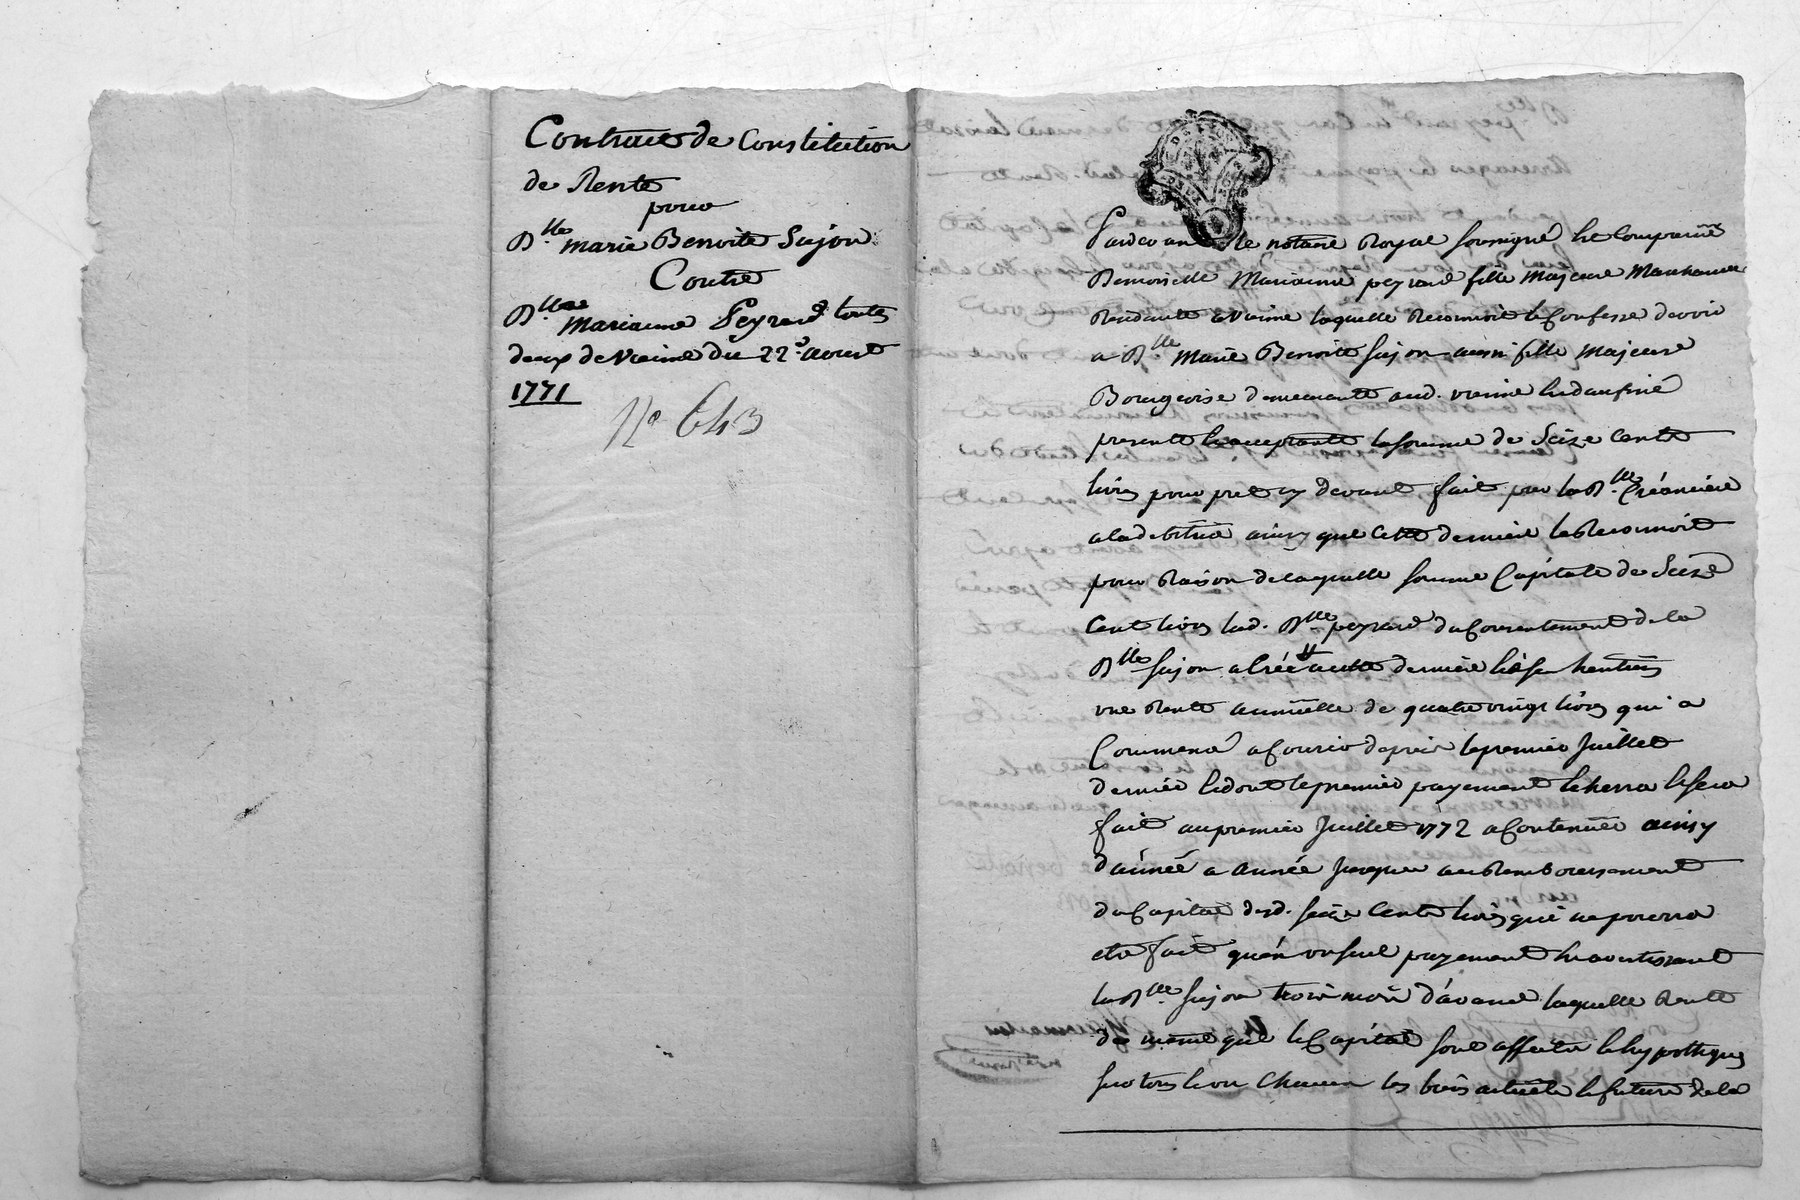 Contract de Constitution
de Rente
pour
Dlle marie Benoite Sujon
Contre
Dlle Marianne Peyrard toutes
deux de vienne du 22e aoust
1771
No 643
Pardevant le notaire Royal soussigné est Comparüe
Demoiselle Marianne peyrard fille majeure Marchande
Residante a vienne laquelle Reconnoit et Confesse devoir
a Dlle Marie Benoite sujon aussi fille Majeure
Bourgeoise demeurante aud. vienne en daufiné
presente et acceptante la somme de Seize cents
livres pour pret cy devant fait par la Dlle Créancière
a la debitrice ainsy que cette derniere le Reconnoit
pour Raison de laquelle somme Capitale de Seize
Cent livres lad. Dlle peyrard du Consentement de la
Dlle sujon a Créé a cette derniere et a ses
une Rente annüelle de quatre vingt livres qui a
Commencé a Courir depuis le premier Juillet
dernier et dont le premier payement echerra et sera
fait au premier Juillet 1772 a Continüer ainsy
d'année a année Jusques au Remboursement
du Capital desd. seize Cents livres qui ne pourra
etre fait qu'en un seul payement en avertissant
la Dlle sujon trois mois d'avance laquelle Rente
de meme que le Capital sont affectés et hypothéqués
sur tous et un Chacun les biens actuels et futurs de la